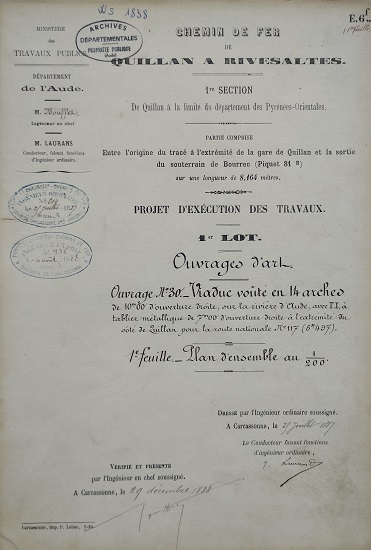 DS 1838
E.6
ARCHIVES
DÉPARTEMENTALES
PROPRIÉTÉ PUBLIQUE
(Aude)
MINISTÈRE
des
TRAVAUX PUBLICS
DÉPARTEMENT
de l'Aude.
M. Bouffet
Ingénieur en chef.
M. LAURANS
Conducteur, faisant fonctions
d'ingénieur ordinaire.
CHEMIN DE FER
DE
QUILLAN A RIVESALTES.
1re SECTION
De Quillan à la limite du département des Pyrénées-Orientales.
PARTIE COMPRISE
Entre l'origine du tracé à l'extrémité de la gare de Quillan et la sortie
du souterrain de Bourrec (Piquet 81 B)
sur une longueur de 8,164 mètres.
PROJET D'EXÉCUTION DES TRAVAUX.
1er LOT.
Ouvrages d'art.
Ouvrage N° 30. Viaduc voûté en 14 arches
de 10m00 d'ouverture droite, sur la rivière d'Aude, avec P.I. à
tablier métallique de 7m00 d'ouverture droite à l'extrémité du
côté de Quillan, pour la route nationale N° 117
1re feuille. Plan d'ensemble au 1/200.
DRESSÉ par l'Ingénieur ordinaire soussigné.
A Carcassonne, le 27 juillet 1887
Le Conducteur faisant fonctions
d'ingénieur ordinaire,
Laurans
VÉRIFIÉ ET PRÉSENTÉ
par l'Ingénieur en chef soussigné.
A Carcassonne, le 29 décembre 1888
Carcassonne, Imp. P. Labau,